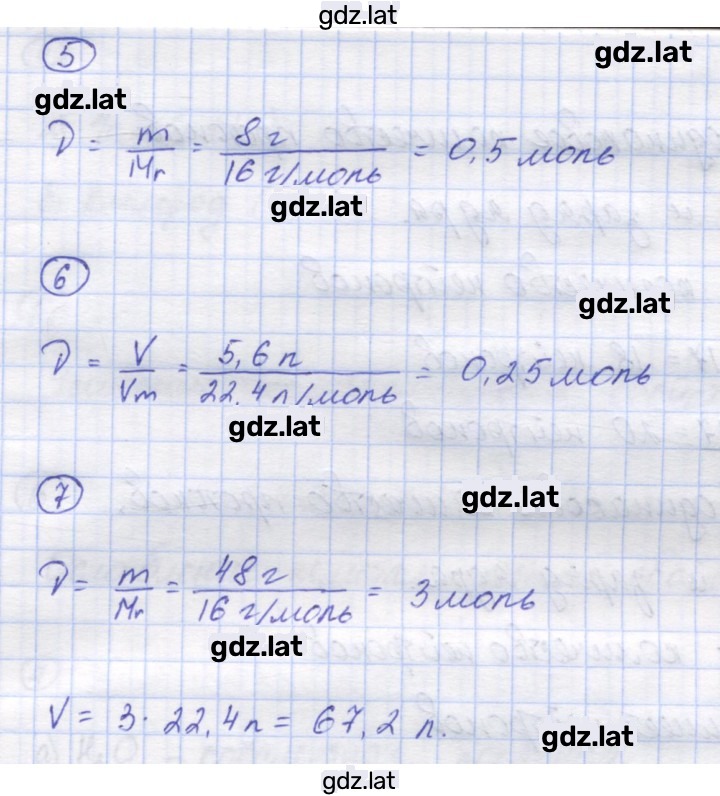 gdz.lat
5
gdz.lat
gdz.lat
ν = m/Mr = 8 г/16 г/моль = 0,5 моль
gdz.lat
6
gdz.lat
ν = V/Vm = 5,6 л/22.4 л/моль = 0,25 моль
gdz.lat
7
gdz.lat
ν = m/Mr = 48 г/16 г/моль = 3 моль
gdz.lat
V = 3 · 22,4 л = 67,2 л.
gdz.lat
gdz.lat